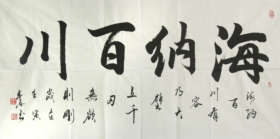 海纳百川
海纳
百
川有
容
乃大
壁
立千
仞
无欲
则刚
岁在
壬寅